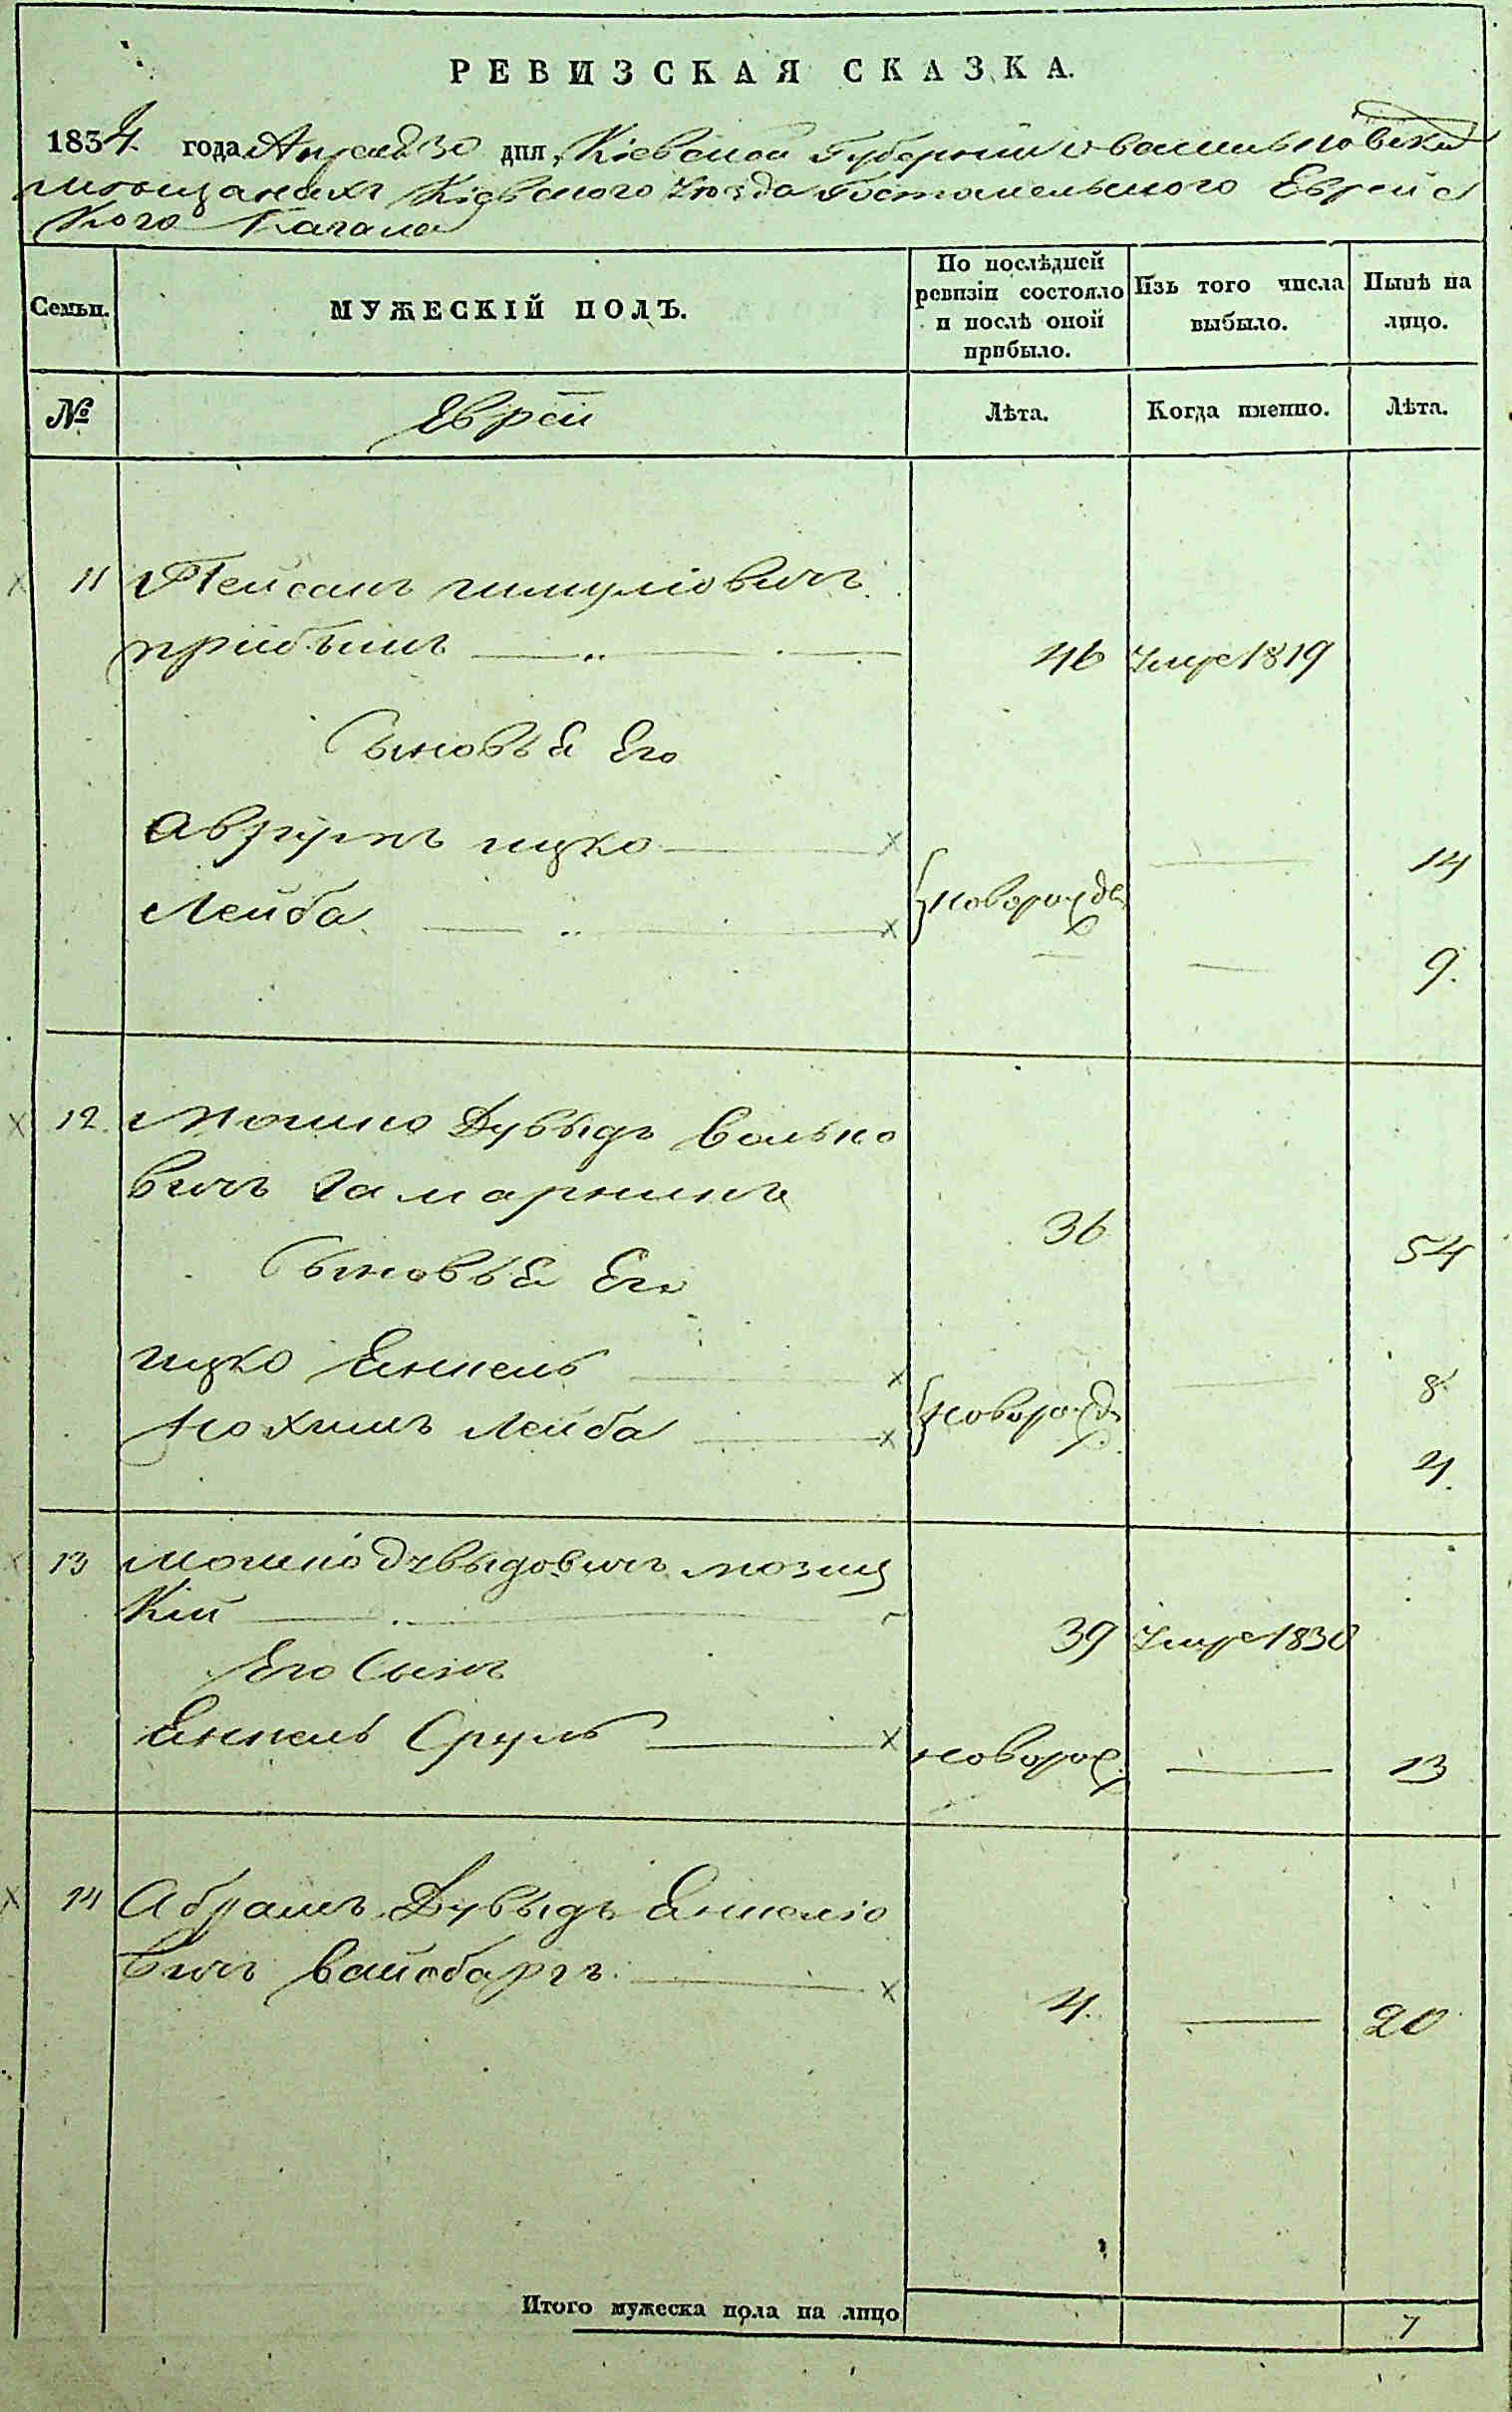 РЕВИЗСКАЯ СКАЗКА.
1834 года Апреля 30 дня, Кіевской Губерніи о васильковски
мещанахъ Кіевского уезда Гостомельского Еврейс
кого Кагала
Семьи.
МУЖЕСКІЙ ПОЛЪ.
По послѣдней ревизіи состояло и послѣ оной прибыло.
Изъ того числа выбыло.
Нынѣ на лицо.
№
Евреи
Лѣта.
Когда именно.
Лѣта.
11 Пейсахъ шмулювичъ
46 Умре 1819
Сыновья Его
ицко 14
Лейба новорожде 9.
12. Мошко Дувыдъ Волько
вичъ Гамарникъ
36 54
Сыновья Его
ицко Янкель 8
Нохимъ Лейба новорожд 4.
13 Мошко дувыдовичъ мозиц
кій 39 Умре 1830
Его Сынъ
Янкель Сруль новорож 13
14 Абрамъ Дувыдъ Янкелю
вичъ Вайсбаргъ 4. 20
Итого мужеска пола на лицо 7